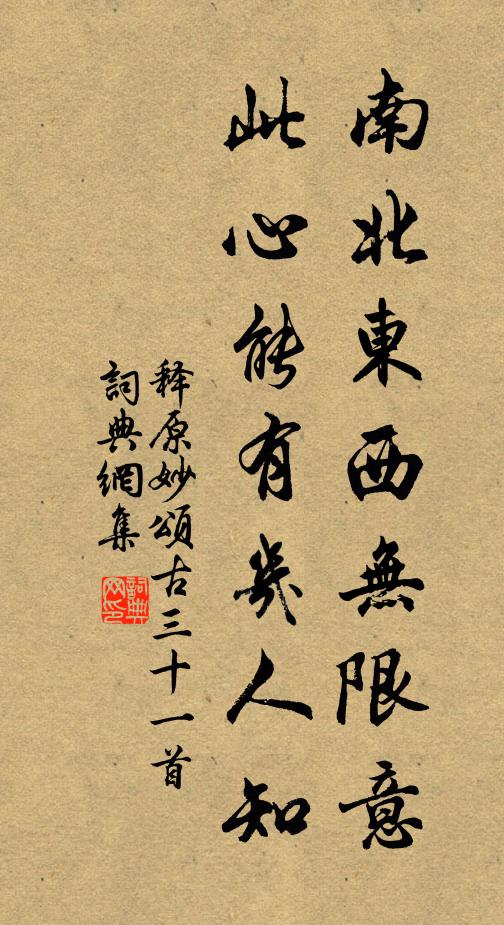 南北東西無限意
此心能有幾人知
释原妙頌古三十一首
詞典網集
詞典
网印